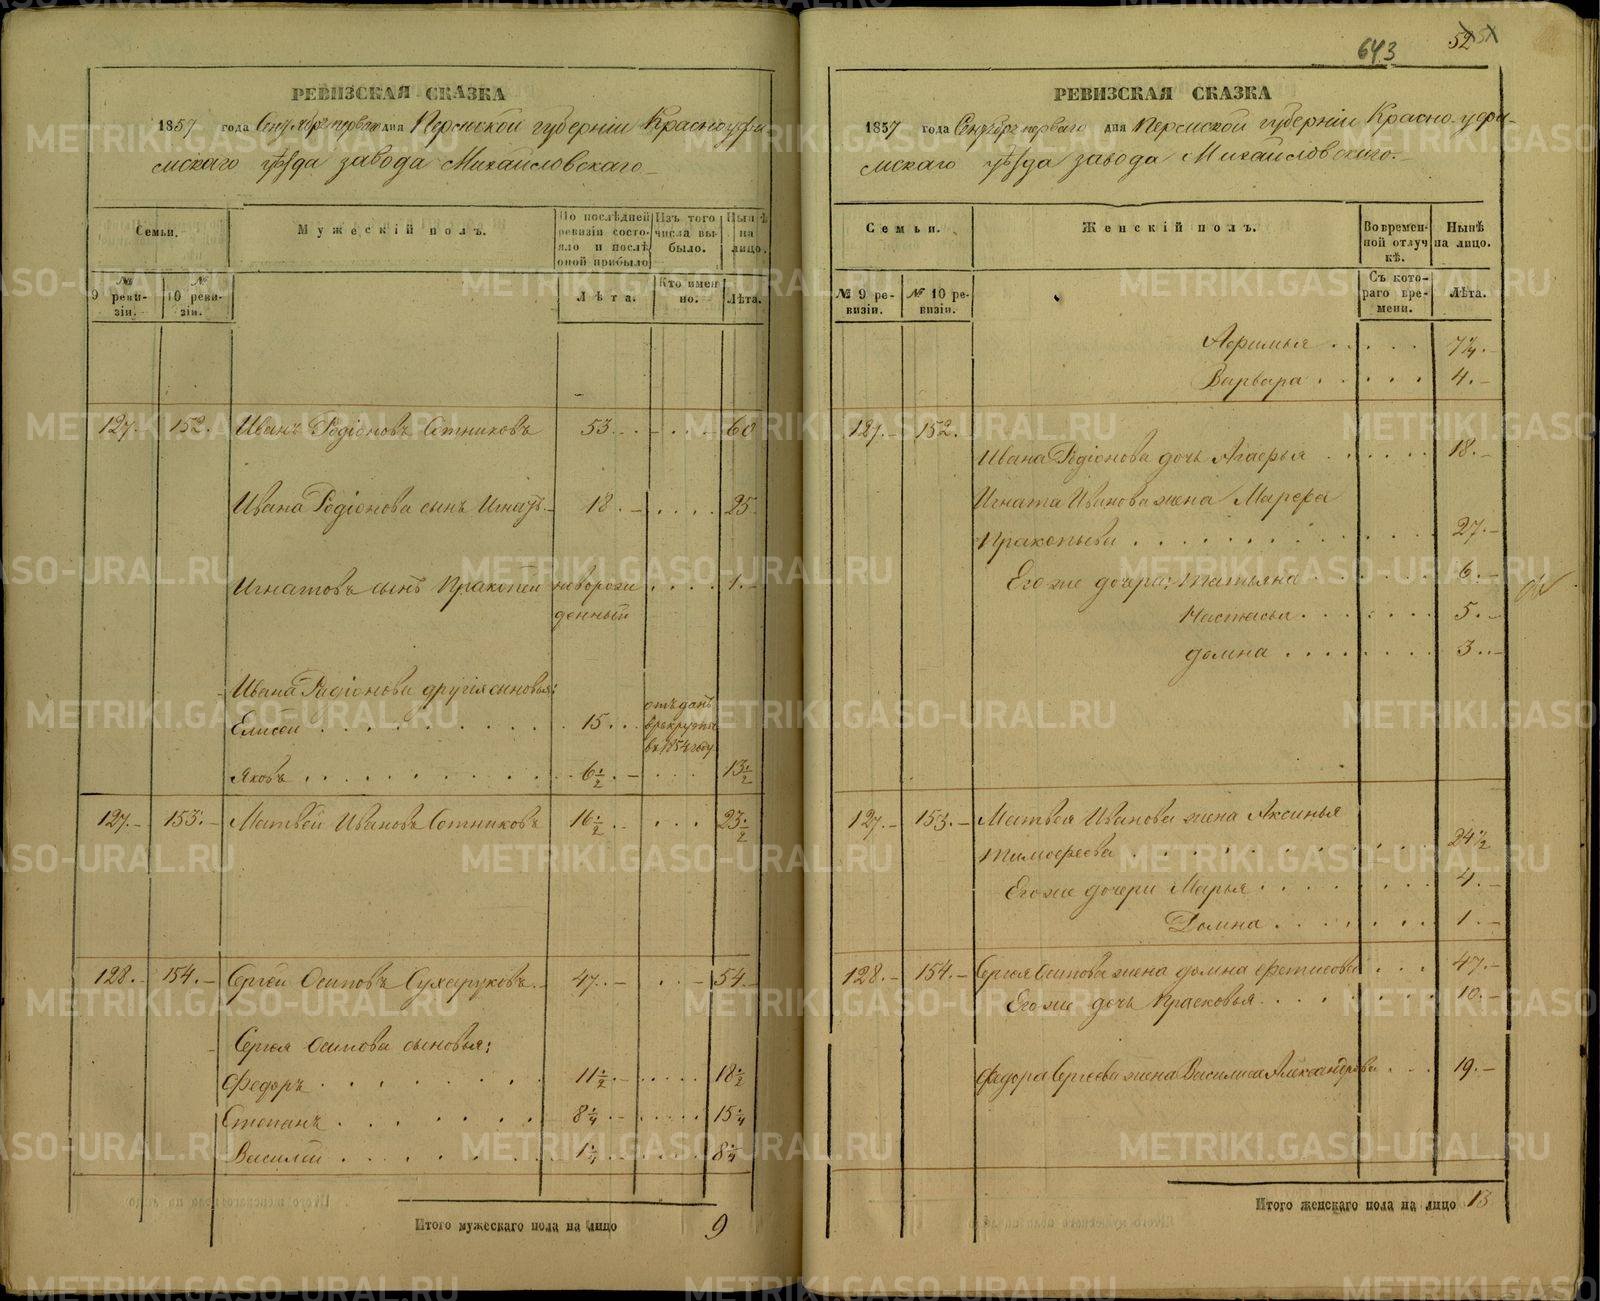 РЕВИЗСКАЯ СКАЗКА
1857 года Сентября перваго дня Пермской губерніи Красноуфи-
мскаго уѣзда завода Михайловскаго
Семьи.
Мужескій полъ.
По послѣдней ревизіи состояло и послѣ оной прибыло
Изъ того числа выбыло.
Нынѣ на лицо.
№ 9 ревизіи.
№ 10 ревизіи.
Лѣта.
Кто именно.
Лѣта.
127. 152. Иванъ Родіоновъ Сотниковъ 53 60
Ивана Родіонова сынъ Игнатъ 18 25
Игнатовъ сынъ Пракопей новорож 1
денный
Ивана Родіонова другія сыновья:
Елисей 15 отъданъ
в рекруты
в 1854 году
Яковъ 6½ 13½
127. 153. Матвей Ивановъ Сотниковъ 16½ 23½
128. 154. Сергей Осиповъ Сухоруковъ 47 54
Сергея Осипова сыновья:
Федоръ 11½ 18½
Степанъ 8¼ 15¼
Василей 1¼ 8¼
Итого мужескаго пола на лицо 9
643
52
РЕВИЗСКАЯ СКАЗКА
1857 года Сентября перваго дня Пермской губерніи Красноуфи-
мскаго уѣзда завода Михайловскаго.
Семьи.
Женскій полъ.
Во временной отлучкѣ.
Нынѣ на лицо.
№ 9 ревизіи.
№ 10 ревизіи.
Съ котораго времени.
Лѣта.
Афимья 7¼
Варвара 4
127. 152.
Ивана Родіонова дочь Агафья 18
Игната Иванова жена Марфа
Пракопьева 27
Его же дочери: Татьяна 6
Настасья 5
Домна 3
127. 153. Матвея Иванова жена Аксинья
Тимофеева 24½
Его же дочери Марья 4
Домна 1
128. 154. Сергея Осипова жена Домна Фетисова 47
Его же дочь Прасковья 10
Федора Сергеева жена Василиса Александрова 19
Итого женскаго пола на лицо 13
METRIKI.GASO-URAL.RU